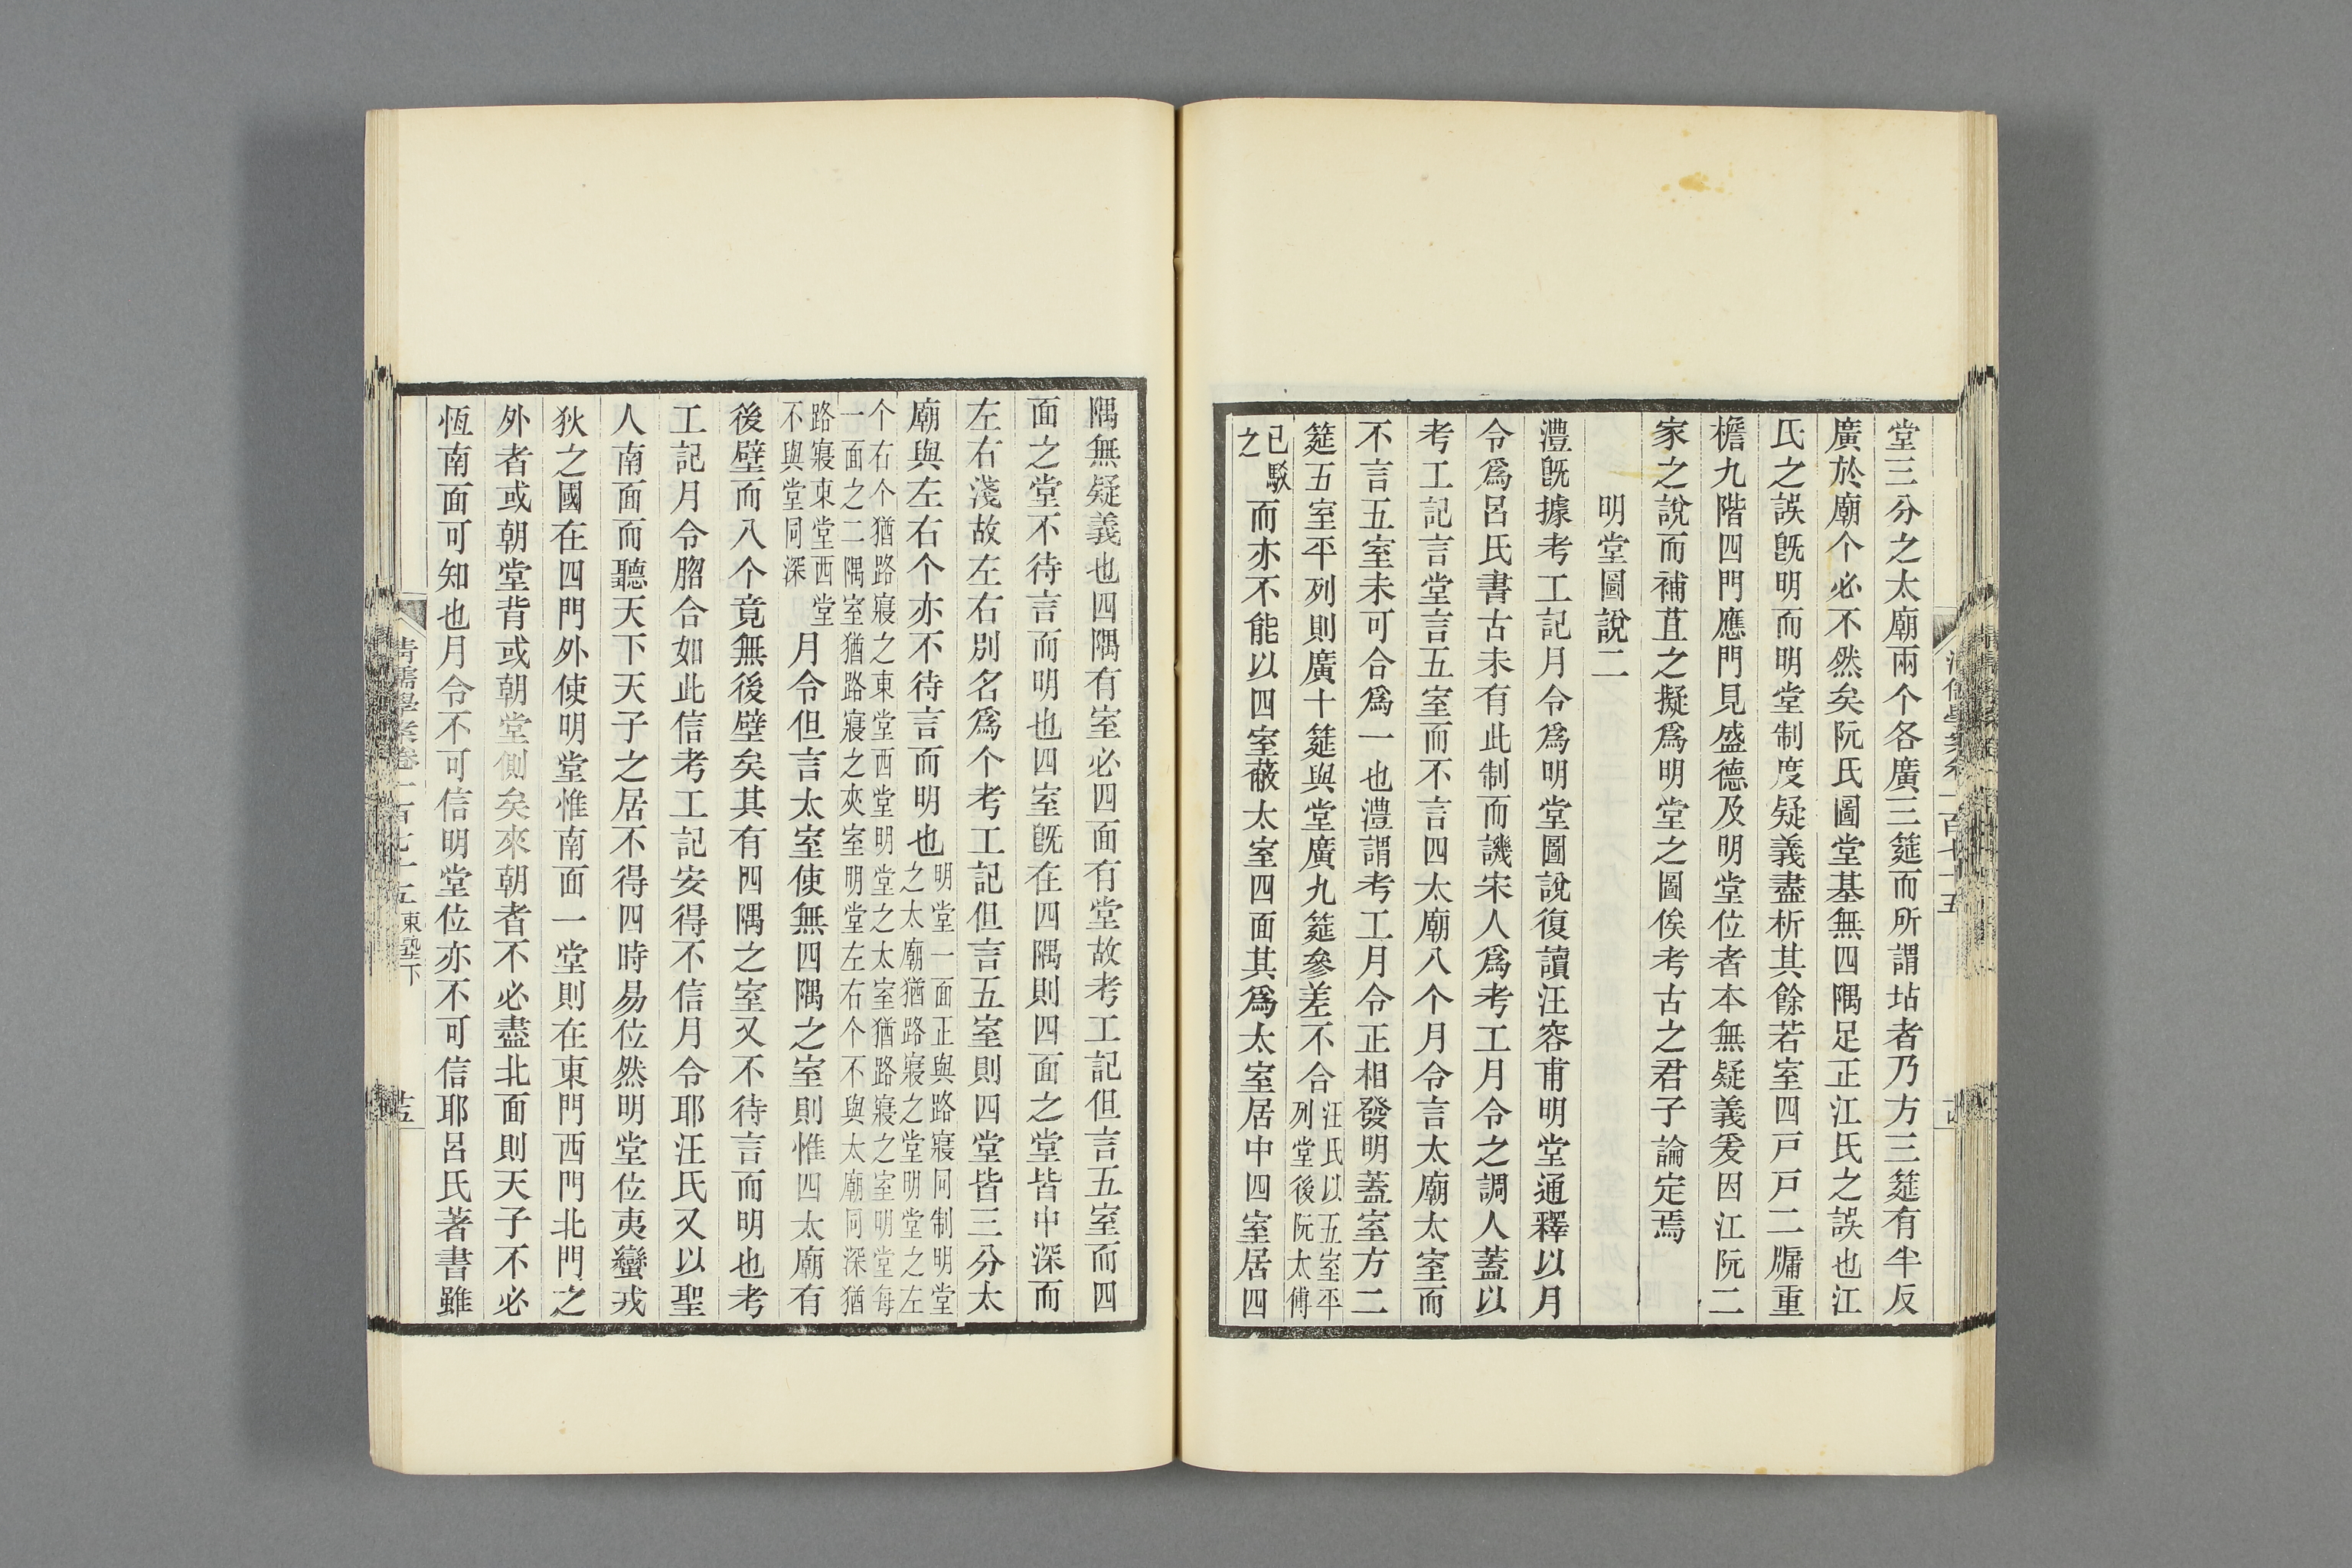 堂三分之太廟兩个各廣三筵而所謂坫者乃方三筵有半反
廣於廟个必不然矣阮氏圖堂基無四隅足正江氏之誤也江
氏之誤旣明而明堂制度疑義盡析其餘若室四戸戸二牖重
檐九階四門應門見盛德及明堂位者本無疑義爰因江阮二
家之說而補苴之擬爲明堂之圖俟考古之君子論定焉
明堂圖說二
澧旣據考工記月令爲明堂圖說復讀汪容甫明堂通釋以月
令爲呂氏書古未有此制而譏宋人爲考工月令之調人蓋以
考工記言堂言五室而不言四太廟八个月令言太廟太室而
不言五室未可合爲一也澧謂考工月令正相發明蓋室方二
筵五室平列則廣十筵與堂廣九筵參差不合汪氏以五室平
列堂後阮太傅
已駁
之而亦不能以四室蔽太室四面其爲太室居中四室居四
隅無疑義也四隅有室必四面有堂故考工記但言五室而四
面之堂不待言而明也四室旣在四隅則四面之堂皆中深而
左右淺故左右別名爲个考工記但言五室則四堂皆三分太
廟與左右个亦不待言而明也明堂一面正與路寢同制明堂
之太廟猶路寢之堂明堂之左
个右个猶路寢之東堂西堂明堂之太室猶路寢之室明堂每
一面之二隅室猶路寢之夾室明堂左右个不與太廟同深猶
路寢東堂西堂
不與堂同深月令但言太室使無四隅之室則惟四太廟有
後壁而八个竟無後壁矣其有四隅之室又不待言而明也考
工記月令脗合如此信考工記安得不信月令耶汪氏又以聖
人南面而聽天下天子之居不得四時易位然明堂位夷蠻戎
狄之國在四門外使明堂惟南面一堂則在東門西門北門之
外者或朝堂背或朝堂側矣來朝者不必盡北面則天子不必
恆南面可知也月令不可信明堂位亦不可信耶呂氏著書雖